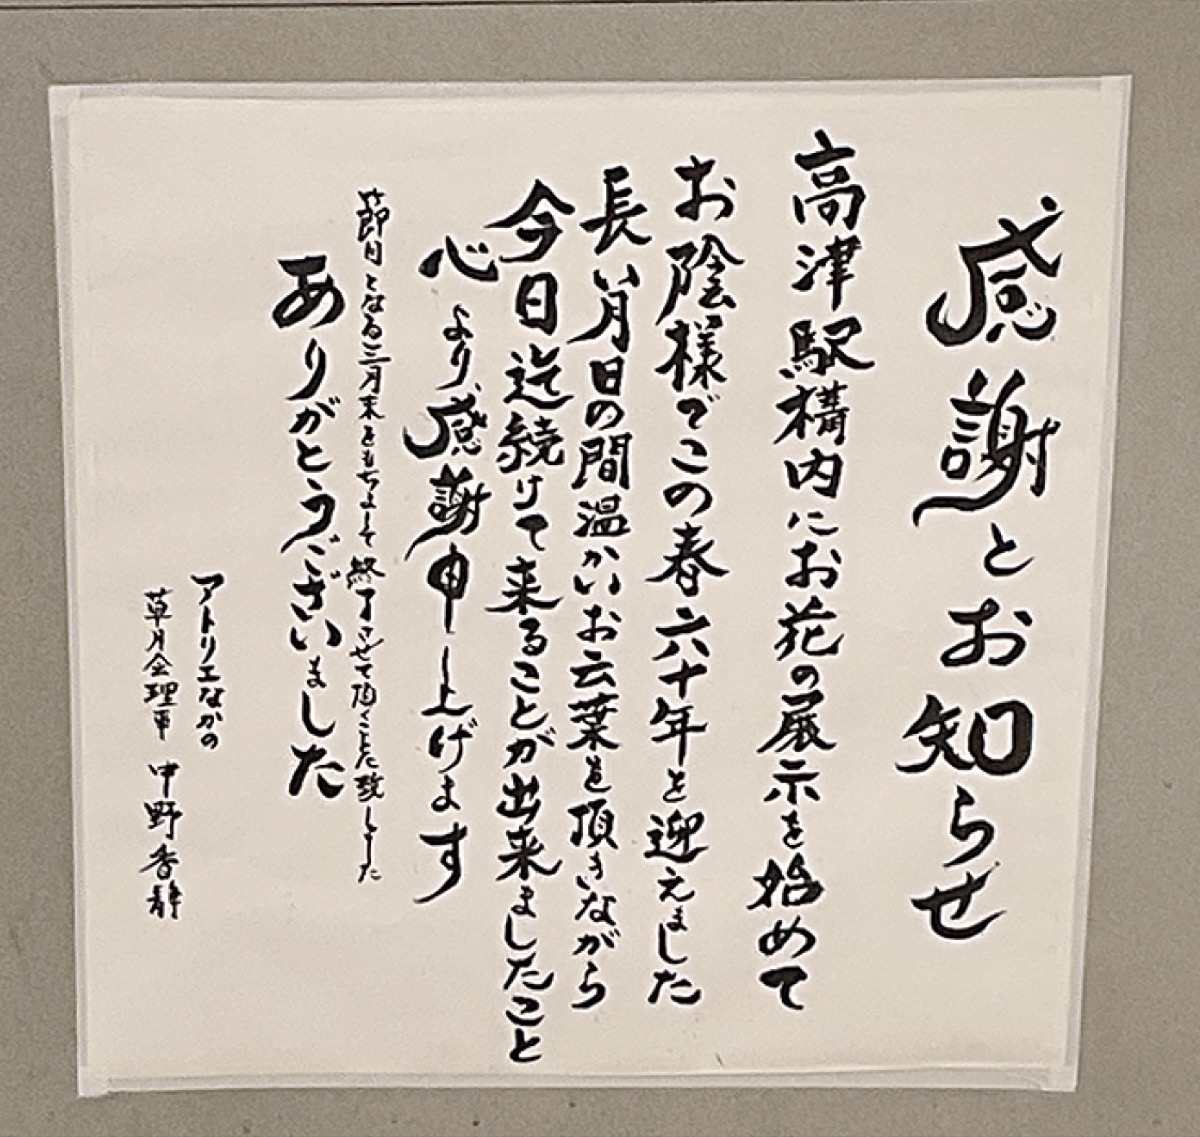 感謝とお知らせ
高津駅構内にお花の展示を始めて
お陰様でこの春六十年を迎えました
長い月日の間温かいお言葉を頂きながら
今日迄続けて来ることが出来ましたこと
心より感謝申し上げます
節目となる三月末をもちまして終了させて頂くことに致しました
ありがとうございました
アトリエなかの
草月会理事 中野香静